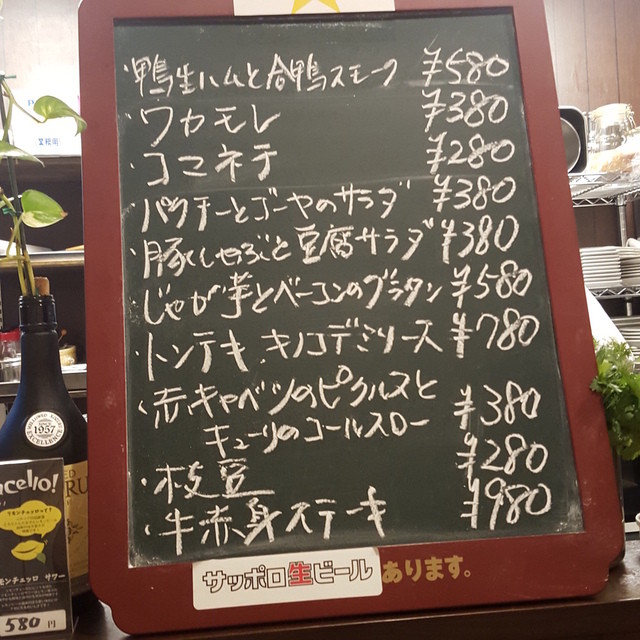 ・鴨生ハムと合鴨スモーク ¥580
・ワカモレ ¥380
・コマネチ ¥280
・パクチーとゴーヤのサラダ ¥380
・豚しゃぶと豆腐サラダ ¥380
・じゃが芋とベーコンのグラタン ¥580
・トンテキ キノコデミソース ¥780
・赤キャベツのピクルスと
キューリのコールスロー ¥380
・枝豆 ¥280
・牛赤身ステーキ ¥980
サッポロ生ビール あります。
SINCE
1957
EXCELLENCE
cello!
モンチェッロ サワー
580円